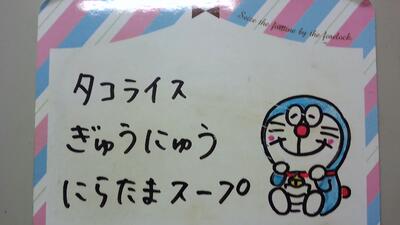 Seize the fortune by the forelock.
タコライス
ぎゅうにゅう
にらたまスープ